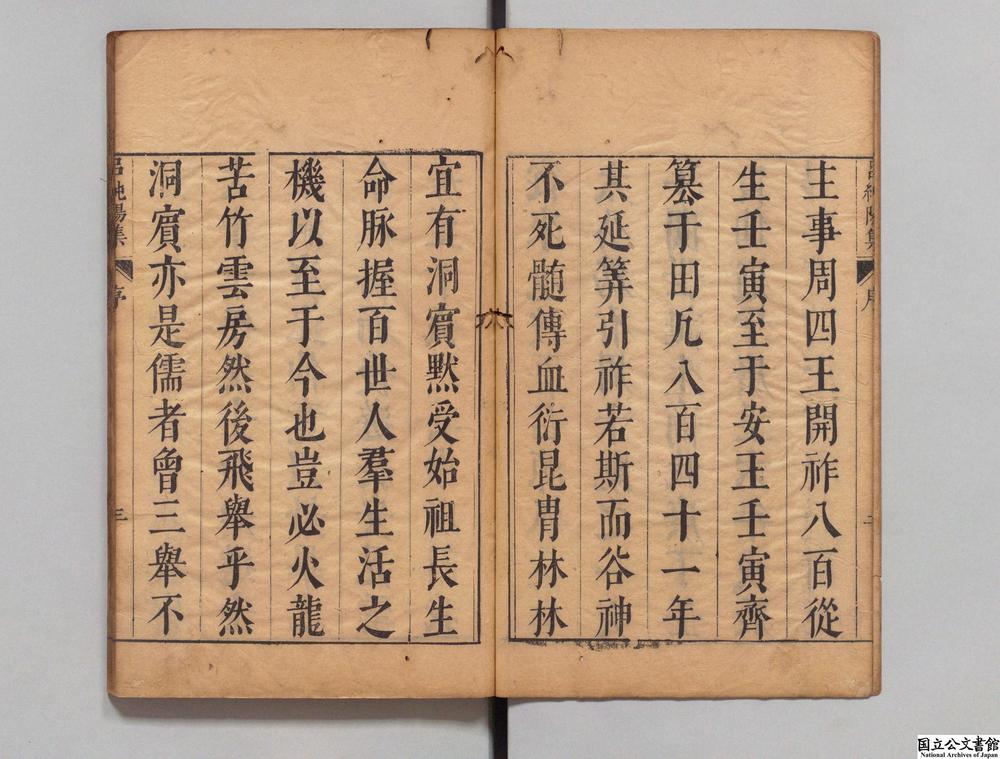 主事周四王開祚八百從
生壬寅至于安王壬寅齊
篡于田凡八百四十一年
其延筭引祚若斯而谷神
不死髓傳血衍昆胄林林
宜有洞賔默受始祖長生
命脉握百世人羣生活之
機以至于今也豈必火龍
苦竹雲房然後飛舉乎然
洞賔亦是儒者曾三舉不
呂純陽集
序
三
国立公文書館
National Archives of Japan